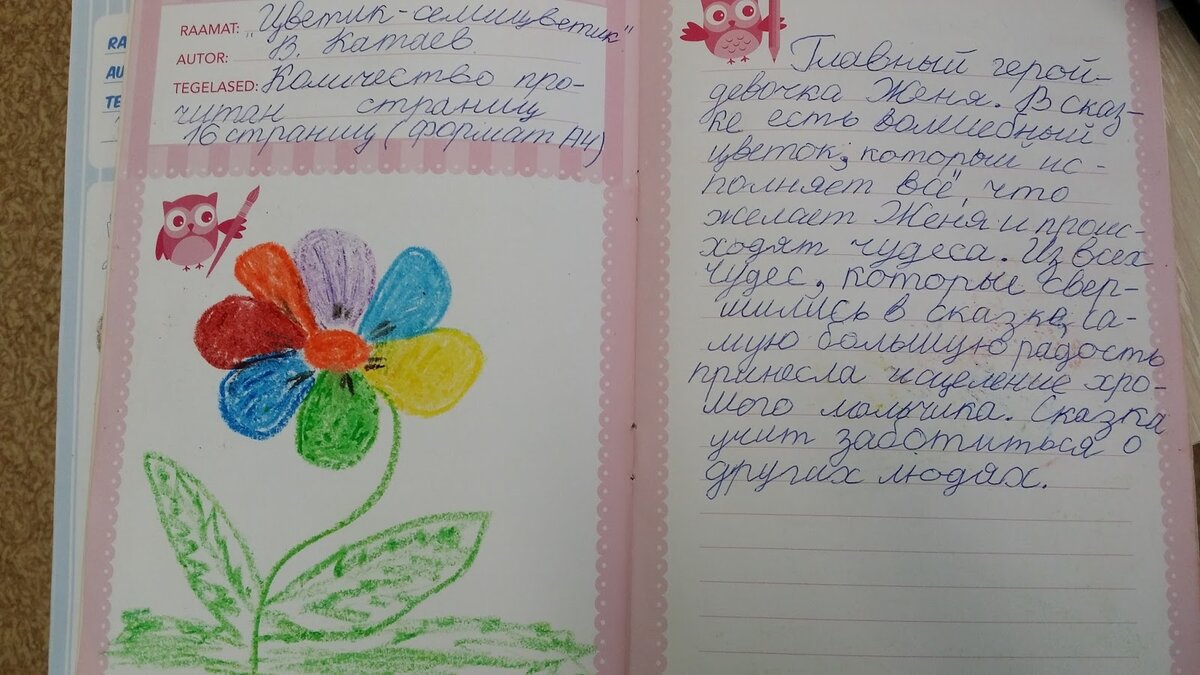 RA
AU
TE
RAAMAT: "Цветик-семицветик"
AUTOR: В. Катаев.
TEGELASED: Количество про-
читан страниц
16 страниц (формат А4)
Главный герой-
девочка Женя. В сказ-
ке есть волшебный
цветок, который ис-
полняет всё, что
желает Женя и проис-
ходят чудеса. Из всех
чудес, которые свер-
шились в сказке, са-
мую большую радость
принесла исцеление хро-
мого мальчика. Сказка
учит заботиться о
других людях.